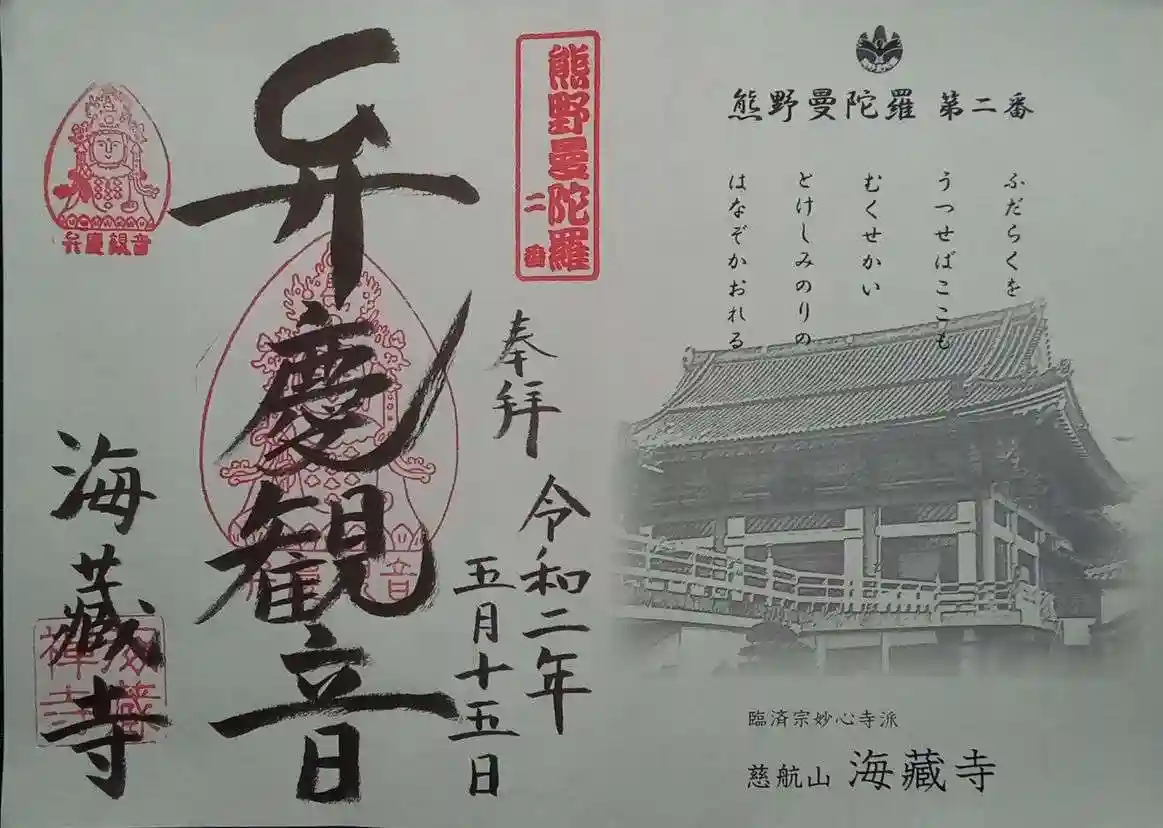 熊野曼陀羅 第二番
ふだらくを
うつせばここも
むくせかい
とけしみのりの
はなぞかおれる
臨済宗妙心寺派
慈航山 海藏寺
熊野曼陀羅
二番
奉拝
令和二年
五月十五日
弁慶観音
弁慶観音
音
海藏寺
海蔵
禅寺